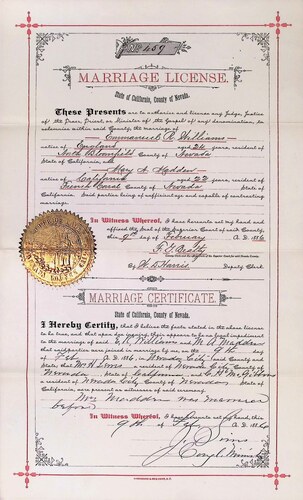 No 409
MARRIAGE LICENSE.
State of California, County of Nevada.
These Presents are to authorize and license any Judge, Justice
of the Peace, Priest, or Minister of the Gospel of any denomination, to
solemnize within said County, the marriage of
Emmanuel R Williams
native of England aged 24 years, resident of
North Bloomfield County of Nevada
State of California, and
Mary A. Madden
native of California aged 22 years, resident of
French Corral County of Nevada
State of California. Said parties being of sufficient age and capable of contracting
marriage.
In Witness Whereof, I have hereunto set my hand and
affixed the Seal of the Superior Court of said County,
this 9th day of February A. D. 1886
F. G. Beatty
By W. D. Harris Deputy Clerk.
MARRIAGE CERTIFICATE.
State of California, County of Nevada.
I Hereby Certify, that I believe the facts stated in the above license
to be true, and that upon due inquiry there appears to be no legal impediment
to the marriage of said E. R. Williams and M. A. Madden
that said parties were joined in marriage by me on the 9th day of
Feb A. D. 1886 in Nevada City said County and
State; that a resident of Nevada City County of
Nevada State of California and
a resident of Nevada City County of Nevada State of
California, were present as witnesses of said ceremony.
Mrs Madden was
before
In Witness Whereof, I have hereunto set my hand, this
9th day of Feb A. D. 1886
J. Sims
Cong'l Minister